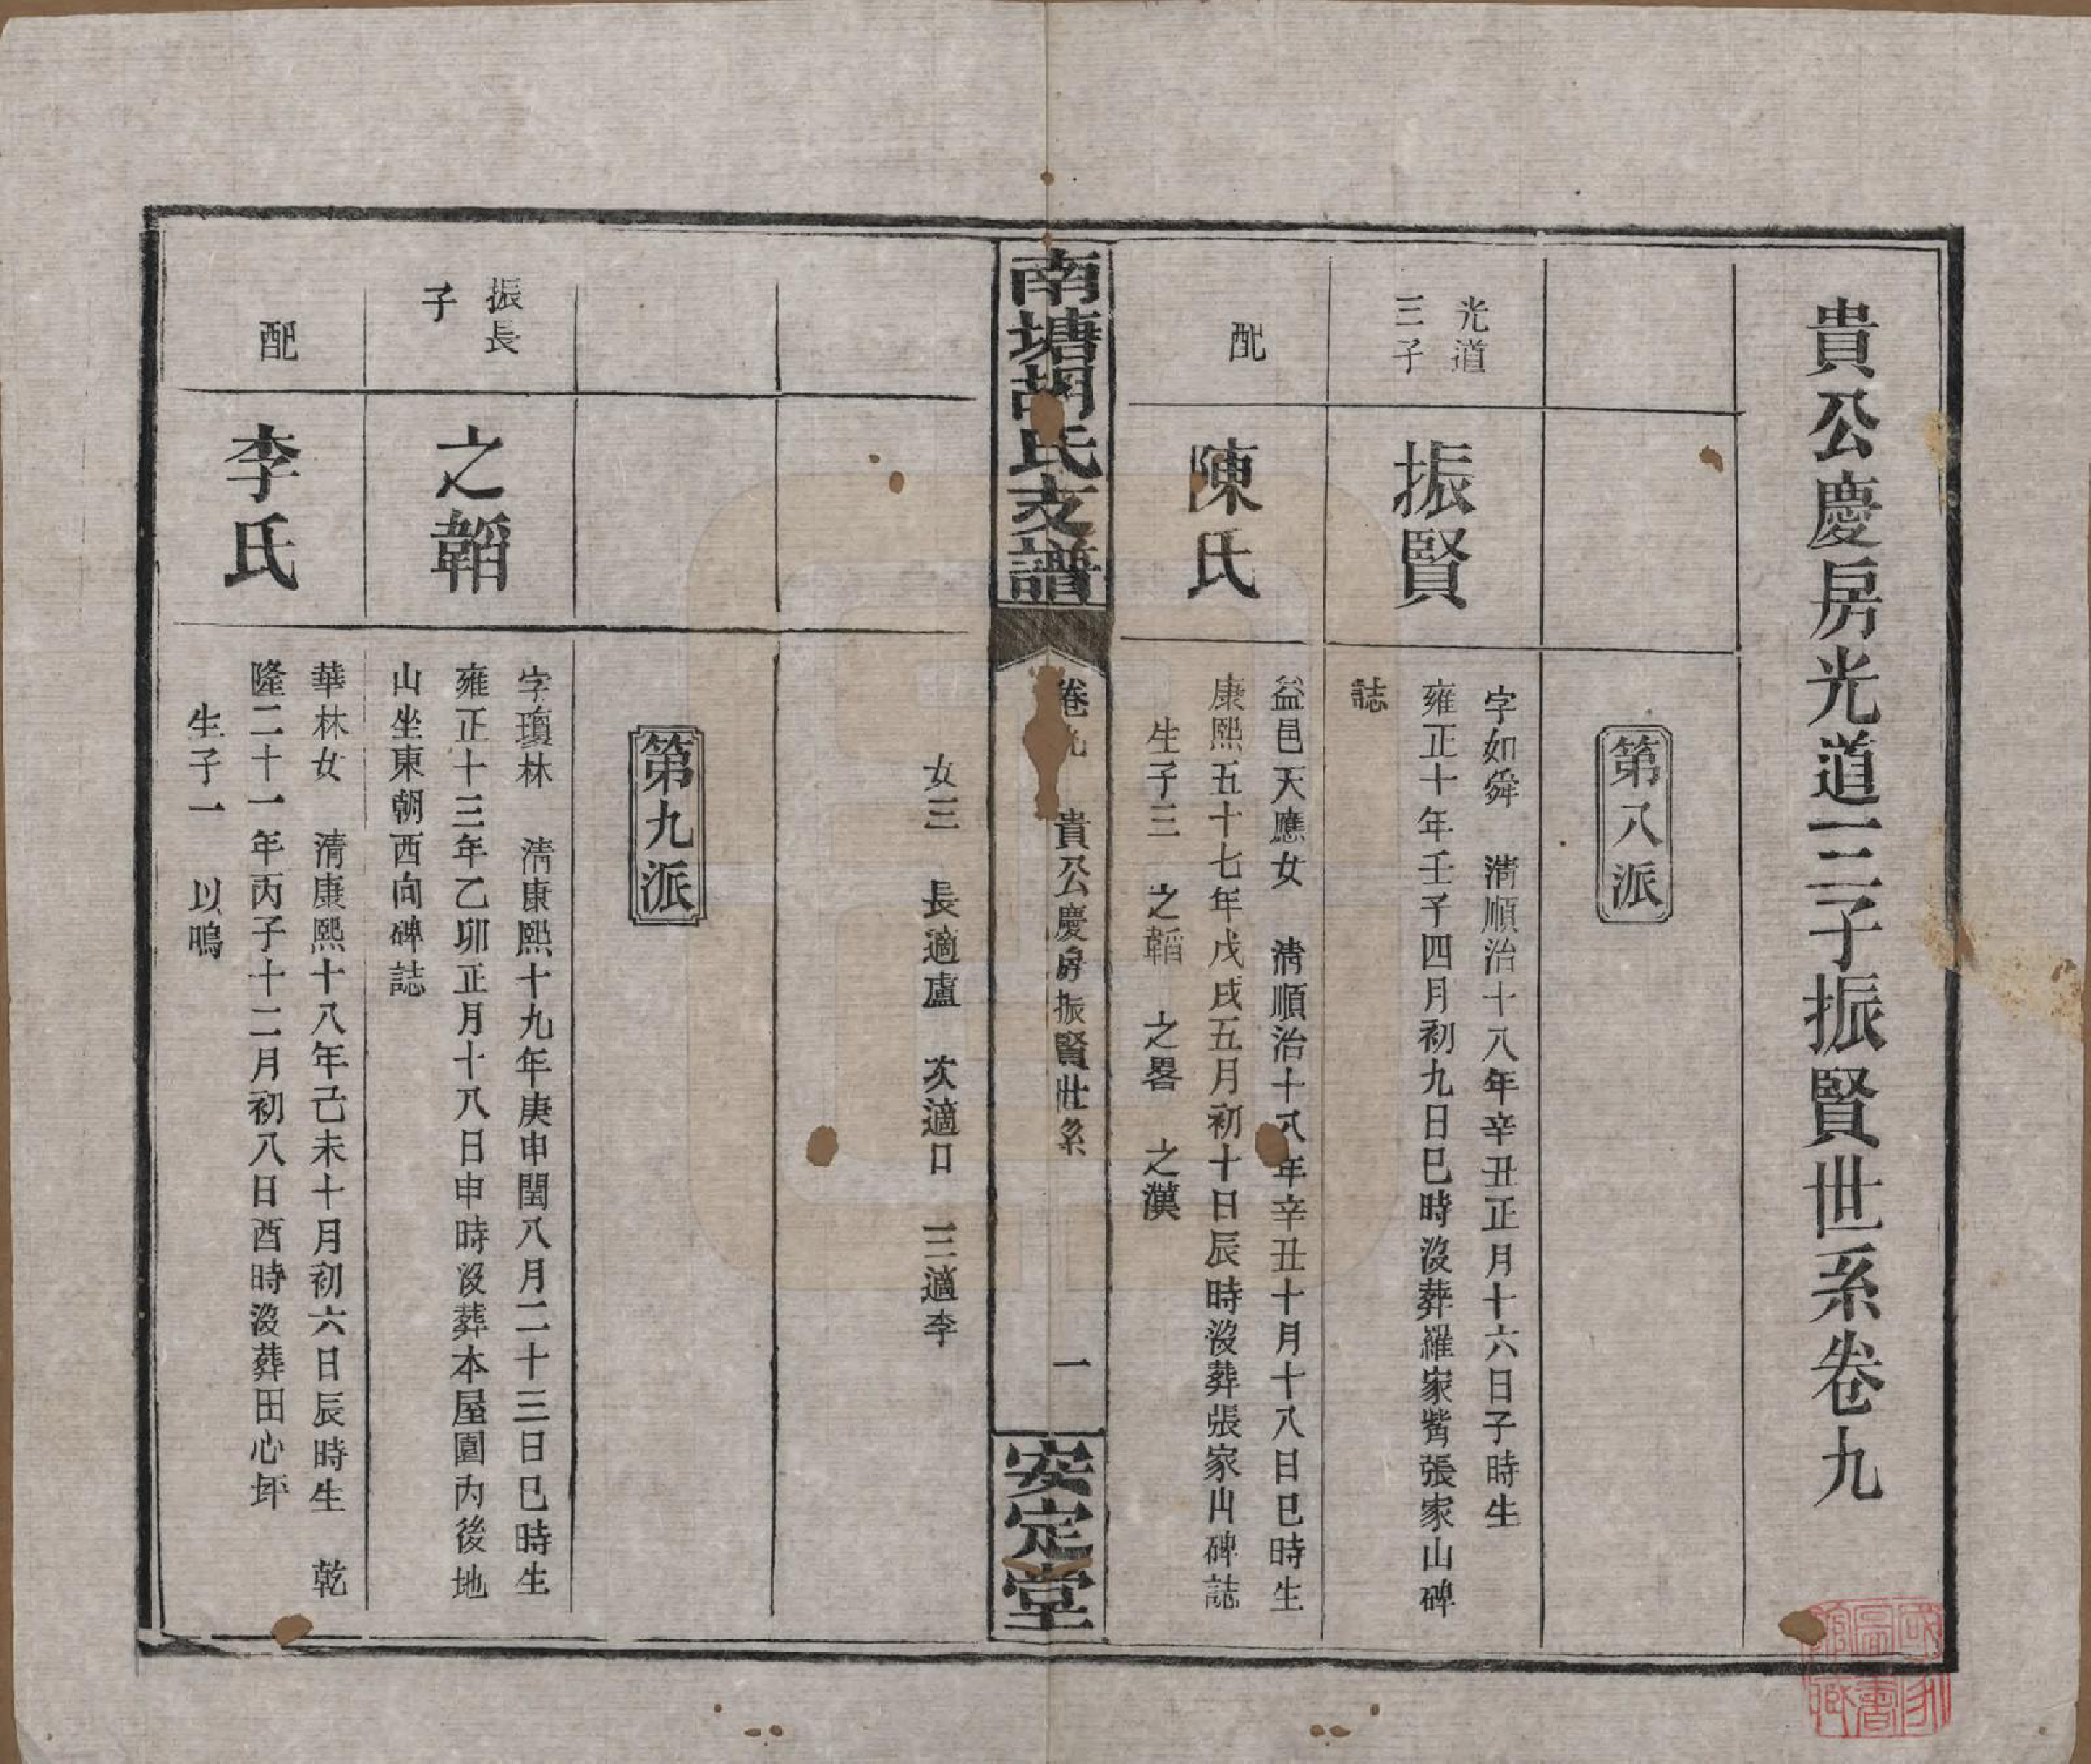 貴公慶房光道三子振賢世系卷九
第八派
光道
三子
振賢
字如舜 清順治十八年辛丑正月十六日子時生
雍正十年壬子四月初九日巳時沒葬羅家嘴張家山碑
誌
配
陳氏
益邑天應女 清順治十八年辛丑十月十八日巳時生
康熙五十七年戊戌五月初十日辰時沒葬張家山碑誌
生子三 之韜 之畧 之漢
南塘胡氏支譜
卷九 貴公慶房振賢世系
一
安定堂
女三 長適盧 次適口 三適李
第九派
振長
子
之韜
字瓊林 清康熙十九年庚申閏八月二十三日巳時生
雍正十三年乙卯正月十八日申時沒葬本屋園內後地
山坐東朝西向碑誌
配
李氏
華林女 清康熙十八年己未十月初六日辰時生 乾
隆二十一年丙子十二月初八日酉時沒葬田心坪
生子一 以鳴